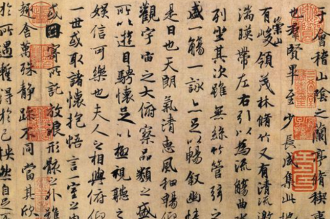 會稽山陰之蘭亭脩
也群賢畢至少長咸集此
崇山
有峻領茂林脩竹又有清流
湍暎帶左右引以為流觴曲水
列坐其次雖無絲竹管弦之
盛一觴一詠亦足以暢叙幽情
是日也天朗氣清惠風和暢仰
觀宇宙之大俯察品類之盛
所以遊目騁懷足以極視聽之
娛信可樂也夫人之相與俯仰
一世或取諸懷抱悟言一室之
或因寄所託放浪形骸之外雖
趣舍萬殊靜躁不同當其欣
於所遇蹔得於己怏然自足不